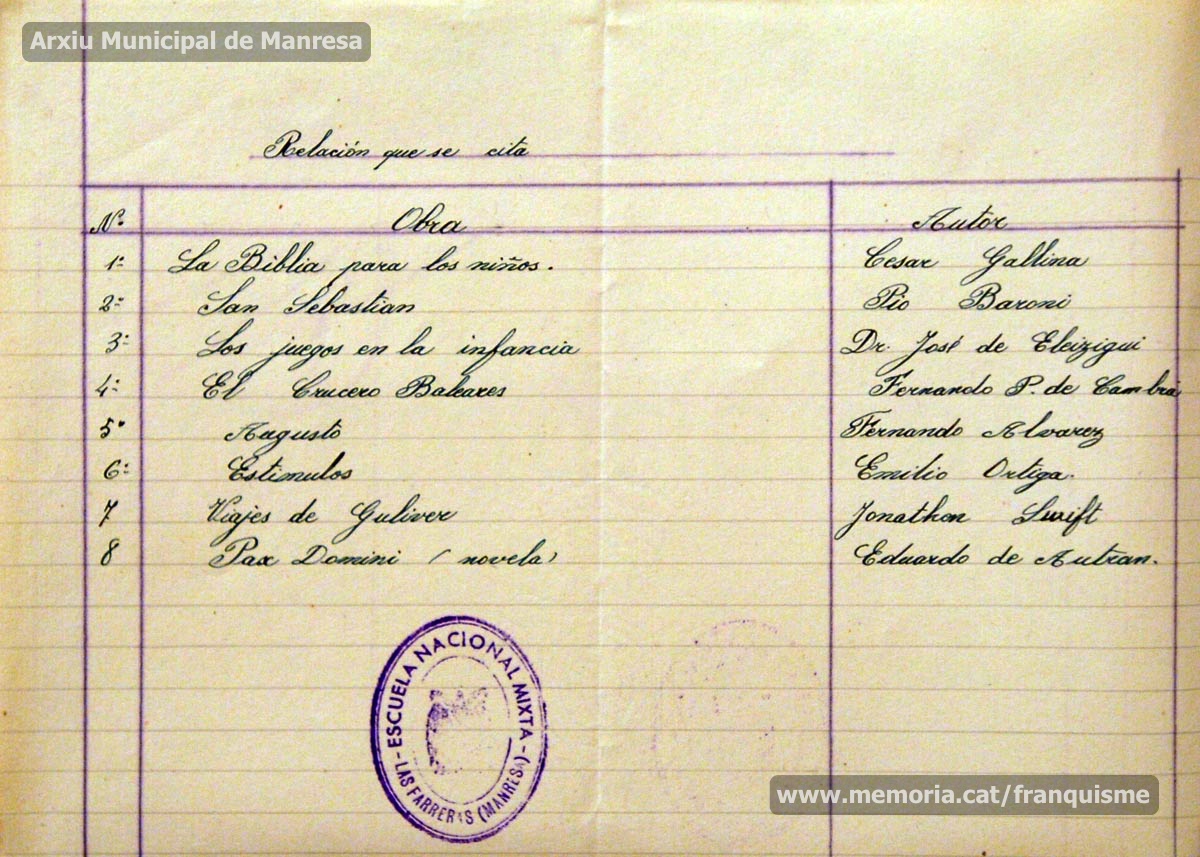 Arxiu Municipal de Manresa
Relación que se cita
Nº Obra Autor
1º La Biblia para los niños. Cesar Gallina
2º San Sebastian Pio Baroni
3º Los juegos en la infancia Dr. José de Eleizigui
4º El Crucero Baleares Fernando P. de Cambra
5º Augusto Fernando Alvarez
6º Estimulos Emilio Ortiga.
7 Viajes de Guliver Jonathon Swift
8 Pax Domini (novela) Eduardo de Autran.
ESCUELA NACIONAL MIXTA
LAS FARRERAS (MANRESA)
www.memoria.cat/franquisme